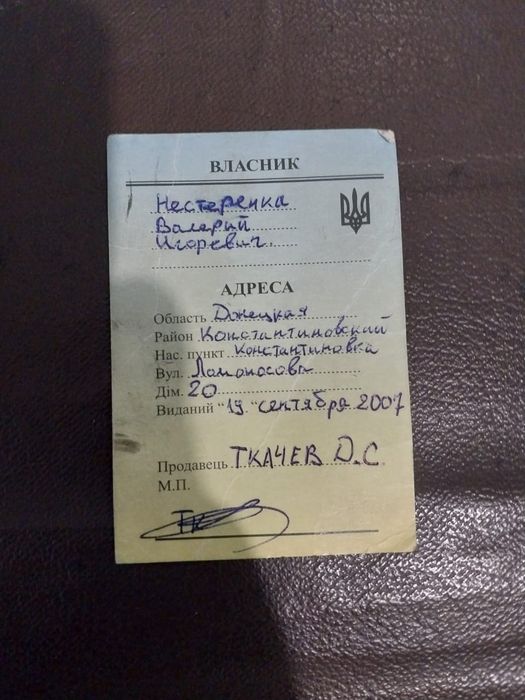 ВЛАСНИК
Нестеренка
Валерий
Игоревич
АДРЕСА
Область Днецкая
Район Константиновский
Нас. пункт Константиновка
Вул. Ломоносова
Дім. 20
Виданий "19" сентября 2007
Продавець ТКАЧЕВ Д.С
М.П.